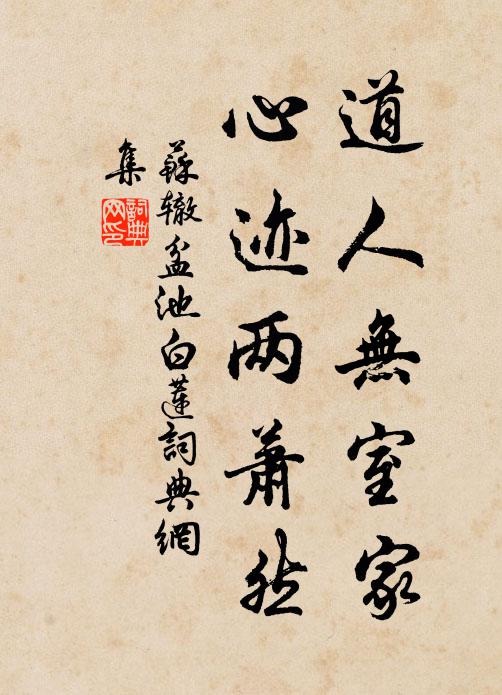 道人無室家
心迹两蕭然
蘇辙盆池白蓮詞典網
集
詞典網印